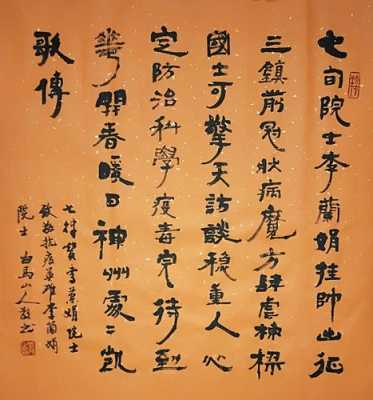 七旬院士李蘭娟挂帥出征
三鎮前冠狀病魔方肆虐棟梁
國士可擎天訪談穩重人心
定防治科學疫毒完待到
華開春暖日神州處〻凱
歌傳
七律贊李蘭娟院士
致敬抗疫英雄李蘭娟
院士 白馬山人敬書